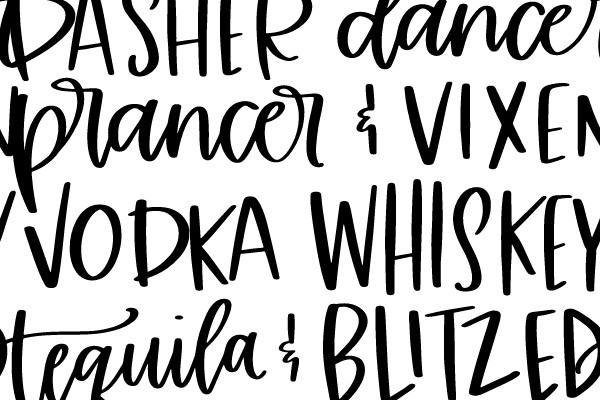 DASHER dancer
prancer & VIXEN
VODKA WHISKEY
tequila & BLITZED